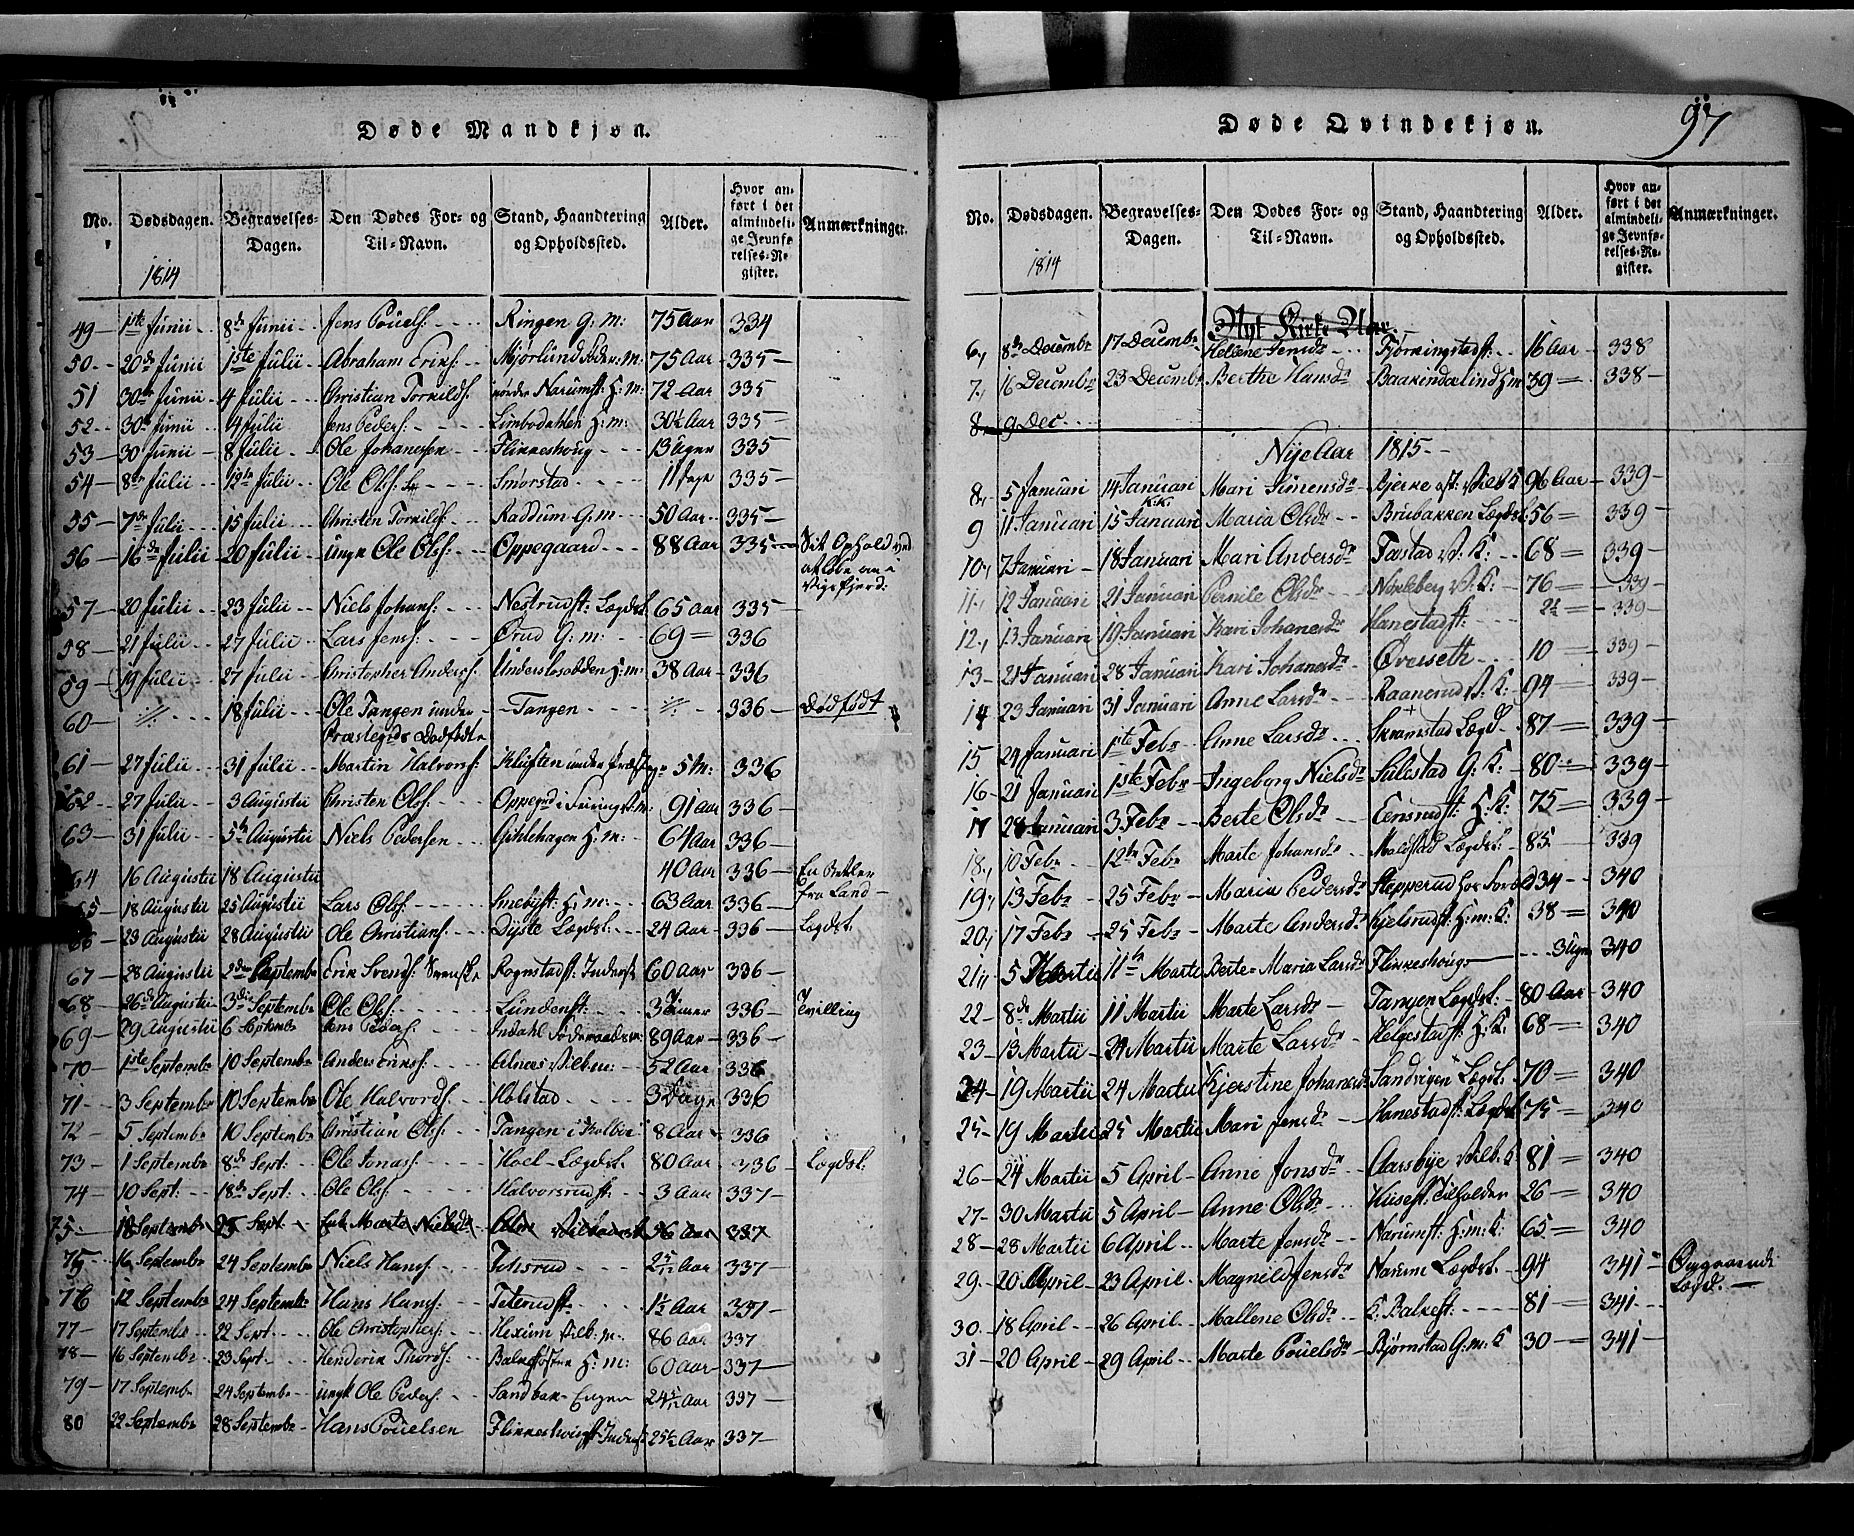 Døde Mandkjøn.
No. Dødsdagen. Begravelses-Dagen. Den Dødes For- og Til-Navn. Stand, Haandtering og Opholdssted. Alder. Hvor anført i det almindelige Jevnførelses-Register. Anmærkninger.
1814
49 1ste Junii 8de Junii Jens Pouels: Ringen G: m: 75 Aar 334
50 20de Junii 1ste Julii Abraham Eriks: Mjørlund Søder: m: 75 Aar 335
51 30te Junii 4 Julii Christian Torkilds: nørder Narumst: H: m: 72 Aar 335
52 30te Junii 4 Julii Jens Peders: Limbodahlen H: m: 30½ Aar 335
53 30 Junii 8 Julii Ole Johanessen Flinneshoug 13 Uger 335
54 8de Julii 12te Julii Ole Olss: Smørstad 11 Dage 335
55 7de Julii 15 Julii Christen Torkilds: Raddum G: m 50 Aar 335
56 16de Julii 20 Julii ungk Ole Ols: Oppegaard 88 Aar 335 Sit Ophold ved
57 20 Julii 23 Julii Niels Johans: Nestrudst: Lægdsl. 65 Aar 335
58 21 Julii 27 Julii Lars Jens: Ørud G: m: 69 = 336
59 19 Julii 27 Julii Christopher Anders: Underslosødden H: m: 38 Aar 336
60 18 Julii Ole Tangen under Tangen 336 Dødfødt
Præstegrde Dødfødt
61 27 Julii 31 Julii Martin Halvors: Kluften under Præstegr 5 M: 336
62 27 Julii 3 Augustii Christen Ols: Oppegrd 91 Aar 336
63 31 Julii 5te Augustii Niels Pedersen Gihlehagen H: m: 64 Aar 336
64 16 Augustii 18 Augustii 40 Aar 336 En Betler
fra Land
65 18 Augustii 25 Augustii Lars Ols: Smebyst: H: m: 63 Aar 336
66 23 Augustii 28 Augustii Ole Christians: Dyste Lægdsl. 24 Aar 336 Lægdsl.
67 28 Augustii 2den Septembr Erik Svends: Svenske Rognstadst: Inderst 60 Aar 336
68 26de Augustii 3die Septembr Ole Ols: Lundenst: 336 Tvilling
69 29 Augustii 6 Septembr Jens Peders: Indahl 89 Aar 336
70 1ste Septembr 10 Septembr Anders Eriks: Alnæs Vilb m: 52 Aar 336
71 3 Septembr 10 Septembr Ole Halvords: Holstad 3 Dage 336
72 5 Septembr 10 Septembr Christian Ols: Tangen i Kolbu 8 Aar 336
73 1 Septembr 8de Sept: Ole Jonas: Hoel Lægdsl. 80 Aar 336 Lægdsl.
74 10 Sept: 18de Sept: Ole Ols: Halvorsrudst: 3 Aar 337
75 18 Septembr 25 Sept Enk: Marte Nielsdr 96 Aar 337
75 16 Septembr 24 Septembr Niels Hans: 2 5/12 Aar 337
76 12 Septembr 24 Septembr Hans Hans: Teterudst: 1½ Aar 337
77 17 Septembr 22 Sept Ole Christophers: Hexum Vilb: m: 86 Aar 337
78 16 Septembr 23 Sept Henderik Thords: H: m: 60 Aar 337
79 17 Septembr 24 Septembr ungk Ole Peders: Sandbak Engen 24 Aar 337
80 22 Septembr 28 Septembr Hans Pouelsen Flinneshougst: Inderst 25½ Aar 337
Døde Qvindekjøn. 97
No. Dødsdagen. Begravelses-Dagen. Den Dødes For- og Til-Navn. Stand, Haandtering og Opholdssted. Alder. Hvor anført i det almindelige Jevnførelses-Register. Anmærkninger.
1814
Nyt Kirke Aar.
6, 8de Decembr 17 Decembr Hellene Jensdr Fjørkingstadst: 16 Aar 338
7, 16 Decembr 23 Decembr Berthe Hansdr Baarindalind H m 39 = 338
8 9 Dec
Nye Aar 1815
8, 5 Januari 14 Januari Mari Simensdr Bjerke st: Vilb K 96 Aar 339
K.K.
9 11 Januari 15 Januari Maria Olsdr Brubakken Lægdsl 56 = 339
10, 7 Januari 18 Januari Mari Andersdr Taastad V: K: 68 = 339
11, 12 Januari 21 Januari Pernile Olsdr Nøkleberg V: K: 76 = 339
12, 13 Januari 19 Januari Kari Johanesdr Hanestadst: 339
13 21 Januari 28 Januari Kari Johanesdr Øverseth 10 = 339
14 23 Januari 31 Januari Anne Larsdr Raanerud V: K: 94 339
15 24 Januari 1ste Febr Anne Larsdr Skramstad Lægd 87 = 339
16 21 Januari 1ste Febr Ingeborg Nielsdr Sulestad G: K: 80 = 339
17 28 Januari 3 Febr Berte Olsdr Eensrudst: H: K: 75 = 339
18, 10 Febr 12te Febr Marte Johansdr Maldstad Lægdsl: 85 339
19, 13 Febr 25 Febr Maria Pedersdr Stepperud 34 340
20, 17 Febr 25 Febr Marte Andersdr Kjelsrudst: H: m: K: 38 = 340
21, 5 Martii 11te Marti Berte Maria Larsdr Flinneshoug 3 Uger 340
22 8de Martii 11 Martii Marte Larsdr Tangen Lægdsl. 80 Aar 340
23 13 Martii 24 Martii Marte Larsdr Helgestadst: H: K: 68 = 340
24 19 Martii 24 Martii Kjerstine Johanesdr Sandvigen Lægdsl. 70 = 340
25 19 Martii 25 Martii Mari Jensdr Hanestadst: Lægdsl 75 = 340
26 24 Martii 5 April Anne Jonsdr Aarsbye Vilb: K 81 = 340
27 30 Martii 5 April Anne Olsdr Husest: Tilholden 26 = 340
28 28 Martii 6 April Marte Jensdr Narumst: H: m: K: 65 = 340
29 20 April 23 April Magnild Jensdr Narum Lægdsl. 94 341 Omgaaende
Lægd:
30 18 April 26 April Mallene Olsdr K: Balkest: 81 = 341
31 20 April 29 April Marte Pouelsdr Bjørnstad G: m: K 30 = 341